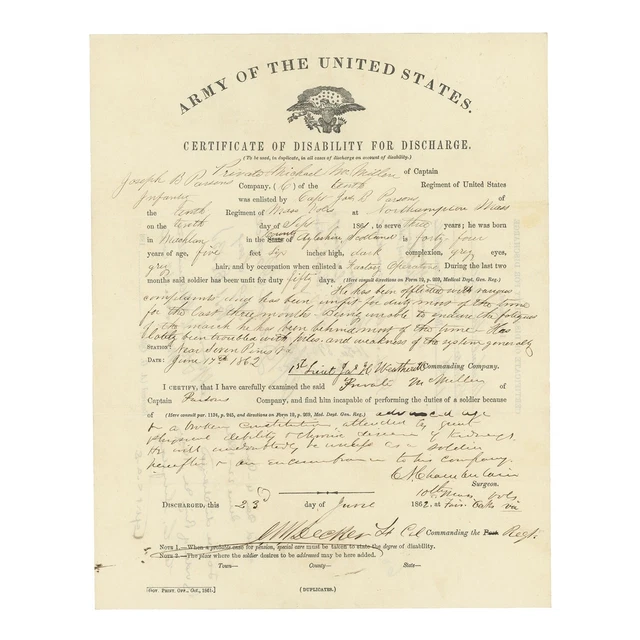 ARMY OF THE UNITED STATES.
CERTIFICATE OF DISABILITY FOR DISCHARGE.
(To be used, in duplicate, in all cases of discharge on account of disability.)
Private Michael McMillen of Captain
Joseph B Parsons Company, (C) of the tenth Regiment of United States
Infantry was enlisted by Capt Jos B Parsons
the tenth Regiment of Mass Vols at Northampton Mass
on the tenth day of Sept 1861, to serve three years; he was born
in in the State County of Ayrshire Scotland is forty four
years of age, five feet six inches high, dark complexion, grey eyes,
grey hair, and by occupation when enlisted a Factory Operative. During the last two
months said soldier has been unfit for duty fifty days. (Here consult directions on Form 12, p. 269, Medical Dept. Gen. Reg.)
He has been afflicted with various
complaints and has been unfit for duty most of the time
for the last three months. Being unable to endure the fatigues
of the march he has been behind most of the time. Has
lately been troubled with piles, and weakness of the system generally
STATION: Near Seven Pines Va
DATE: June 17th 1862
1st Lieut Commanding Company.
I CERTIFY, that I have carefully examined the said Private McMillen of
Captain Parsons Company, and find him incapable of performing the duties of a soldier because
of (Here consult par. 1134, p. 245, and directions on Form 12, p. 269, Med. Dept. Gen. Reg.) advanced age
& a broken constitution, attended by great
physical debility & chronic disease of kidneys.
He will undoubtedly be useless as a soldier
hereafter & an encumbrance to his company.
C N Chamberlain
Surgeon.
10th Mass Vols
DISCHARGED, this 23d day of June 1862, at Fair Oaks Va
Lt Col Commanding the Post Regt.
NOTE 1.—When a probable case for pension, special care must be taken to state the degree of disability.
NOTE 2.—The place where the soldier desires to be addressed may be here added.
Town— County— State—
[GOV. PRINT. OFF., Oct., 1861.] (DUPLICATES.)